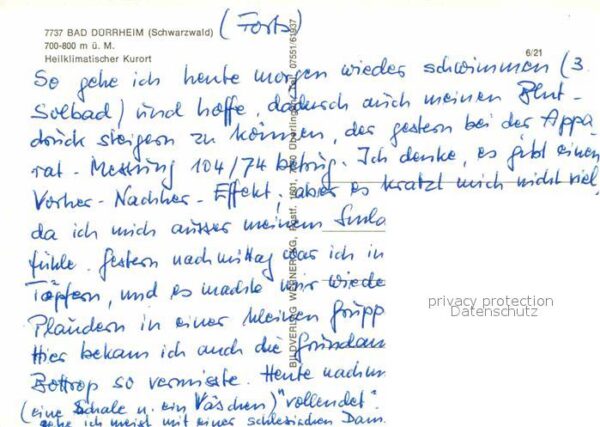 (Forts)
7737 BAD DÜRRHEIM (Schwarzwald)
700-800 m ü. M.
Heilklimatischer Kurort
6/21
So gehe ich heute morgen wieder schwimmen (3.
Solbad) und hoffe, dadurch auch meinen Blut-
druck steigern zu können, der gestern bei der Appa
rat-Messung 104/74 betrug. Ich denke, es gibt einen
Vorher-Nachher-Effekt, aber es kratzt mich nicht viel,
da ich mich ausser meinem
fühle. Gestern nachmittag war ich in
Töpfern, und es machte mir wiede
Plaudern in einer kleinen Grupp
Hier bekam ich auch die
Bottrop so vermisste. Heute nachm
(eine Schale u. ein Väschen) "vollendet".
gehe ich meist mit einer schlesischen Dam
BILDVERLAG Postf. 1631, Überlingen, Tel. 07551/61937
privacy protection
Datenschutz